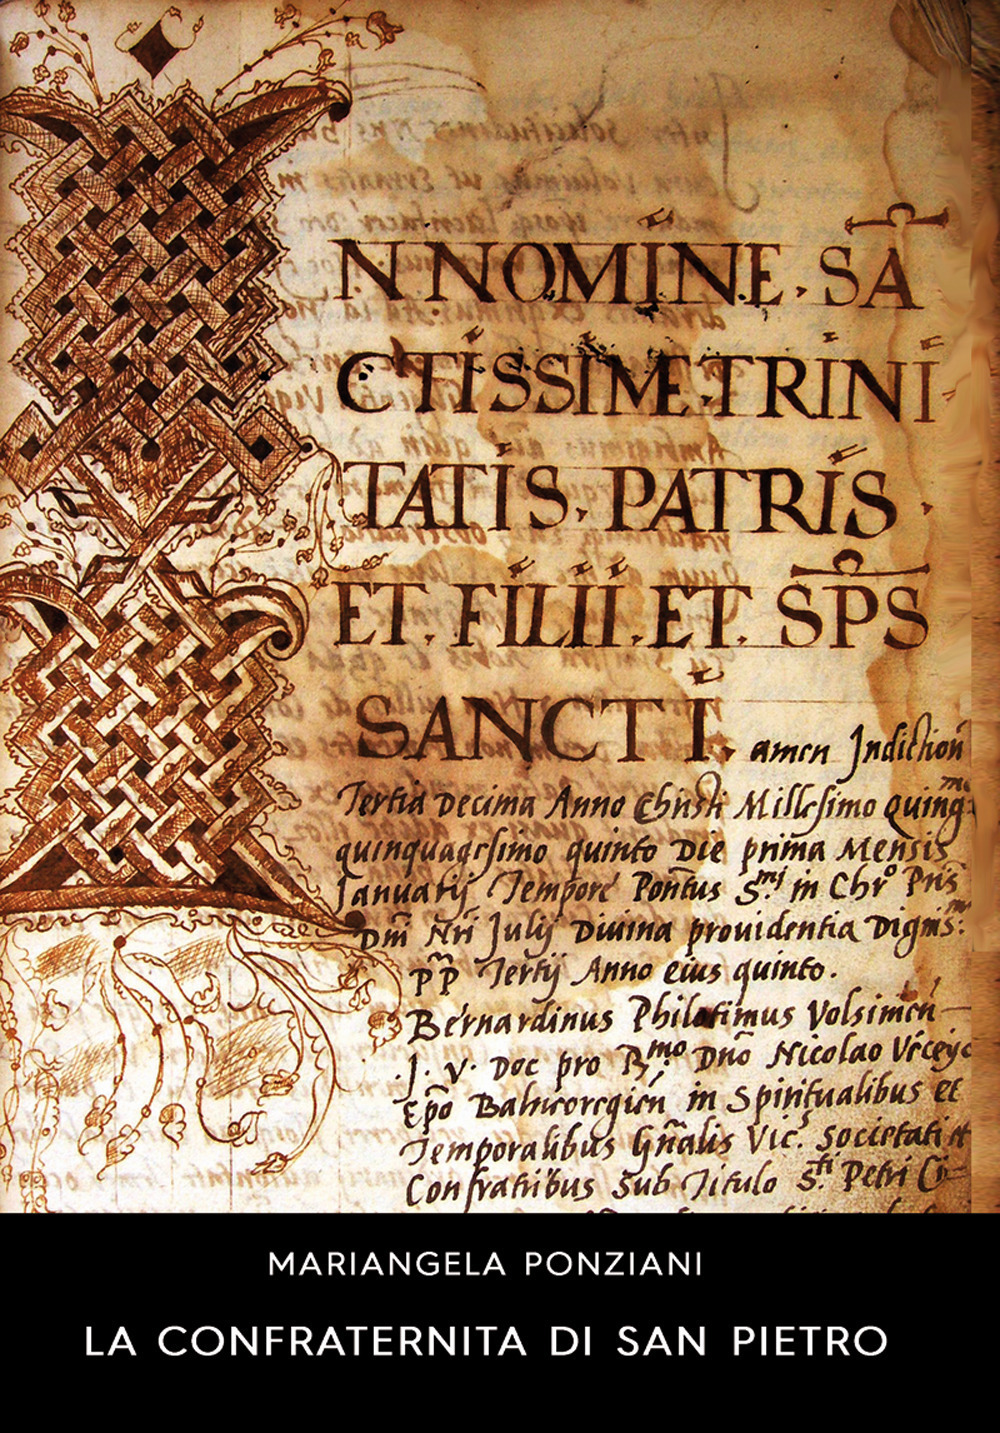 N NOMINE. SA
CTISSIME. TRINI
TATIS. PATRIS.
ET. FILII. ET. SPS
SANCTI. amen Indiction
Tertia Decima Anno Christi Millesimo quing
quinquagesimo quinto Die prima Mensis
Januarij Tempore Pontus S.mi in Chro Pris
Dni Nri Julij Diuina prouidentia Digmis.
pp Tertij Anno eius quinto.
Bernardinus Philotimus Volsinien
J. V. Doc pro R.mo Dno Nicolao
Epo Balneoregien in Spiritualibus et
Temporalibus Gnalis Vic.s Societati et
Confratribus Sub Titulo S.ti Petri Ci-
MARIANGELA PONZIANI
LA CONFRATERNITA DI SAN PIETRO